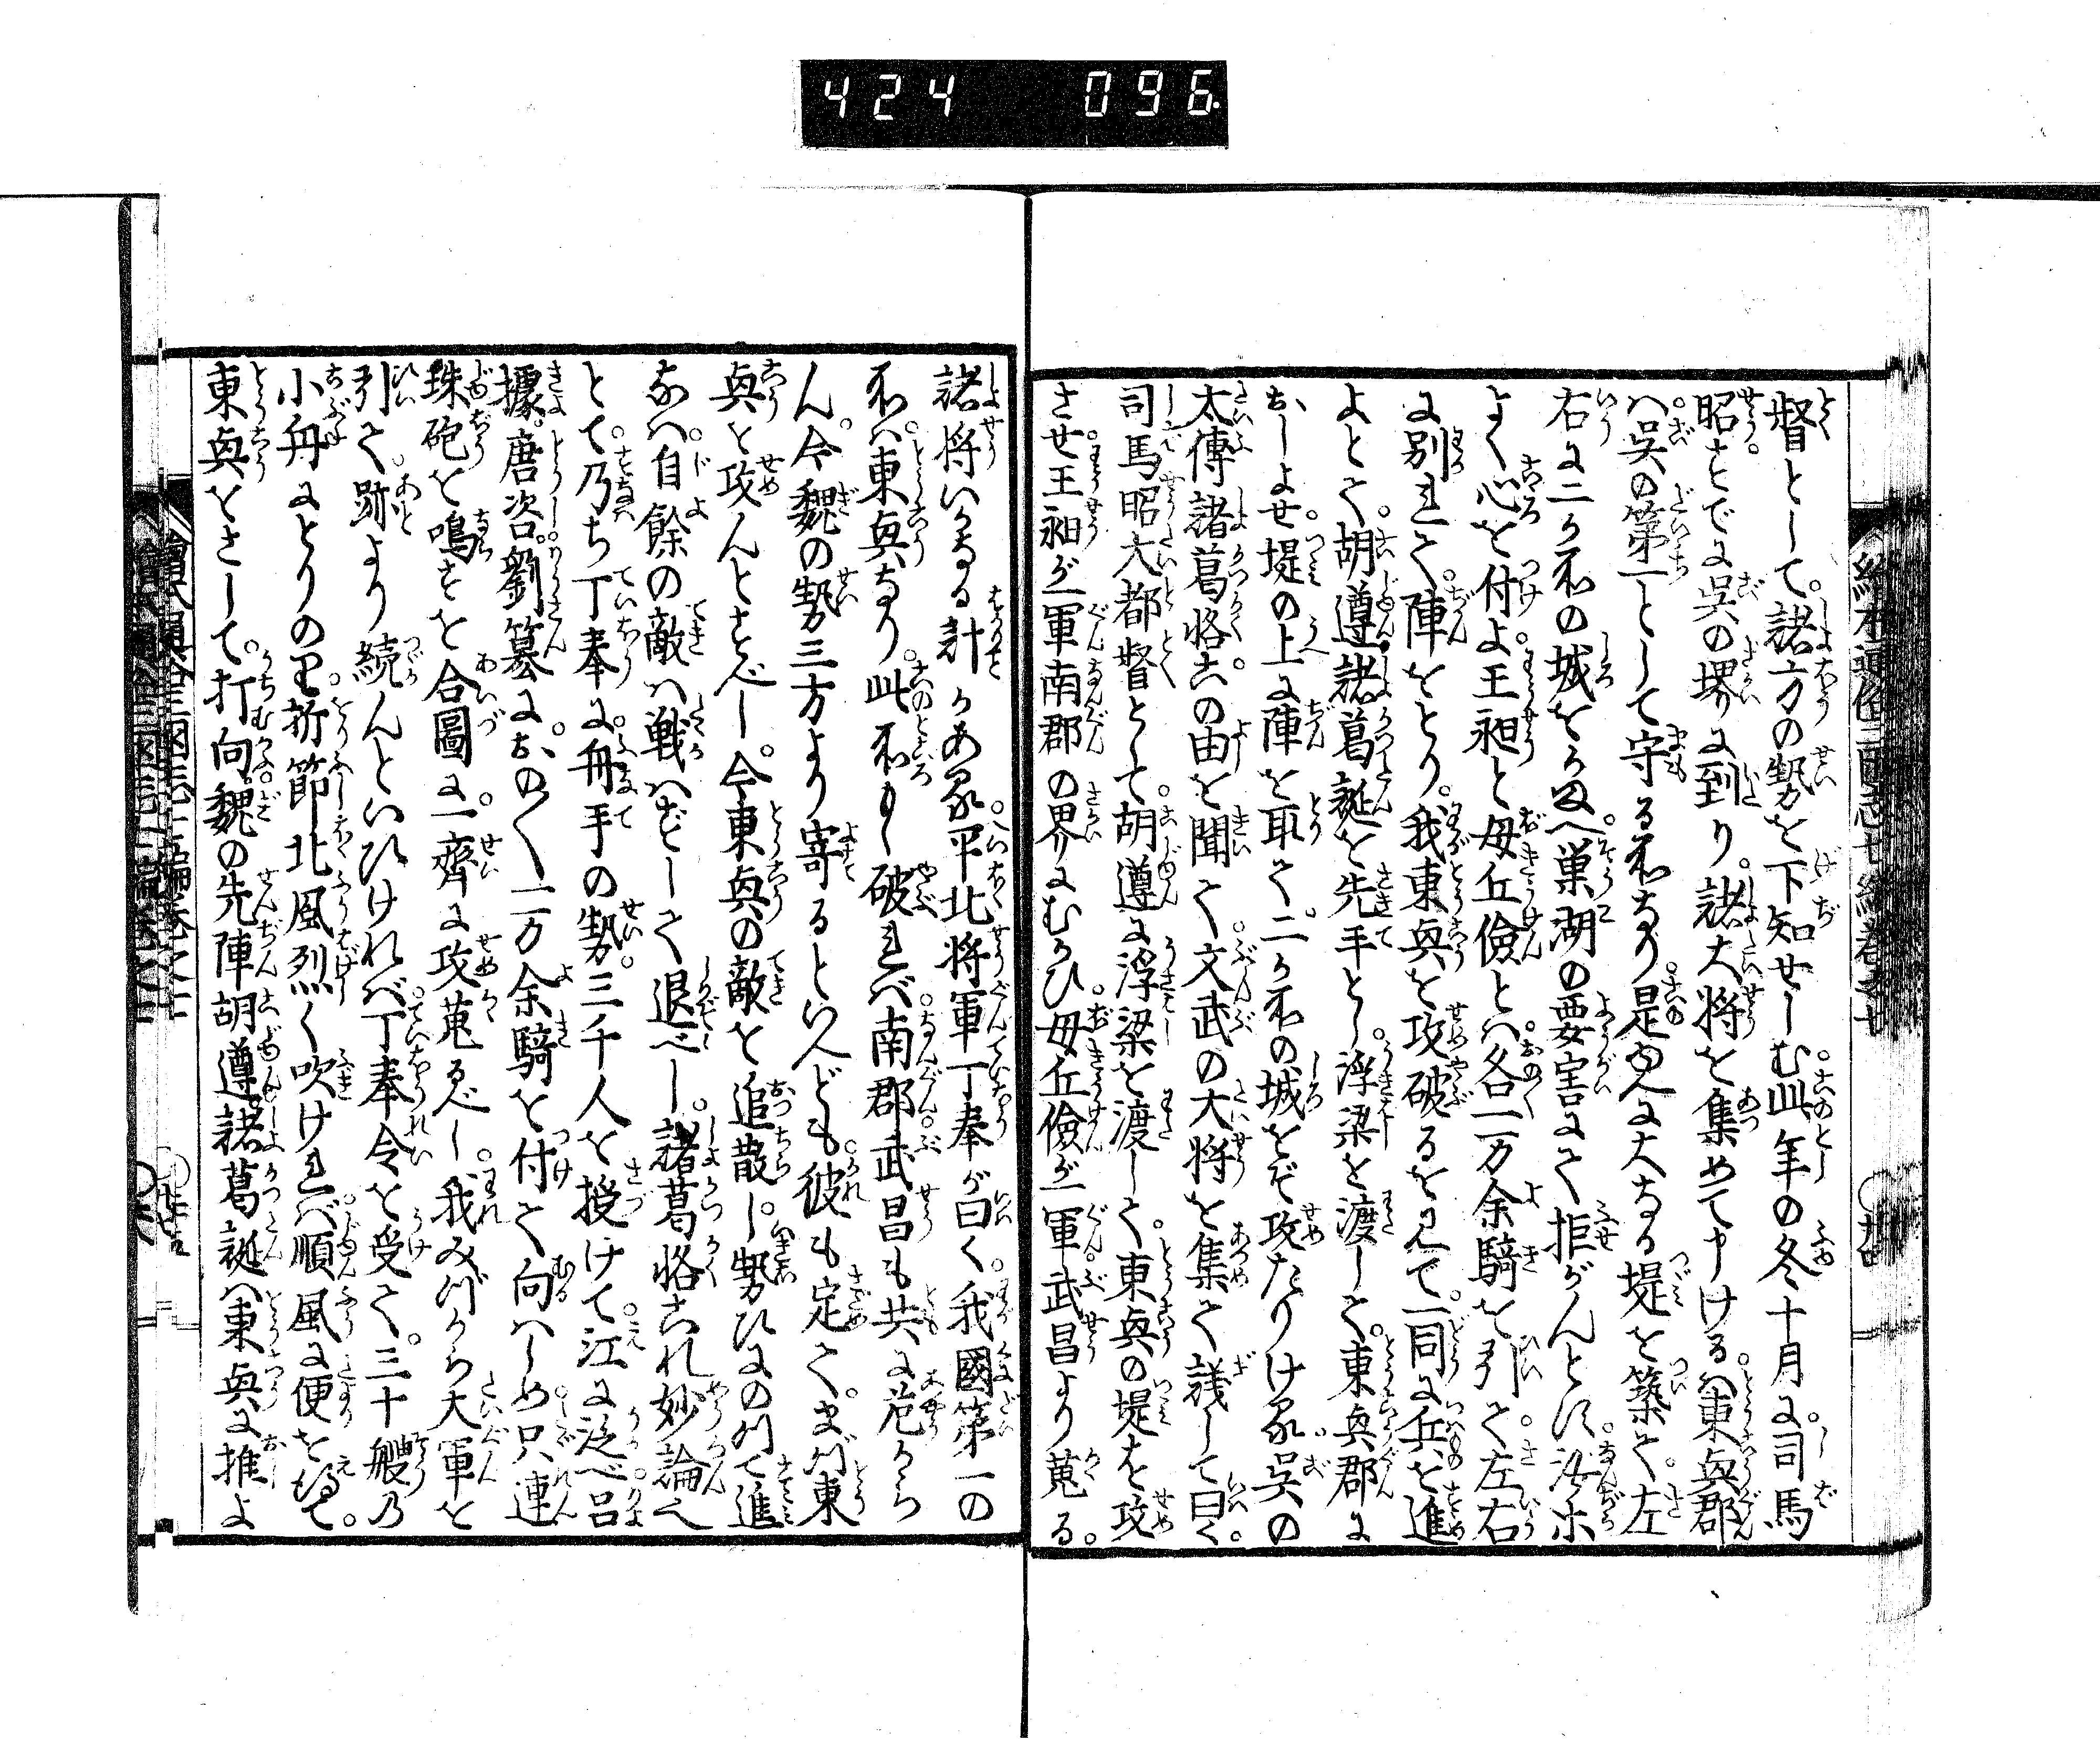 424 096
督として。諸方の勢を下知せしむ此年の冬十月に司馬
昭すでに呉の堺に到り。諸大将を集めて申けるは東興郡
ハ呉の第一として守る所なり是ゆへに大なる堤を築て左
右に二ヶ所の城をかまへ巣湖の要害にて拒がんとす
よく心を付よ王昶と毋丘儉とハ各一万余騎を引て左右
に別れて陣をとり。我東興を攻破るを見て一同に兵を進
よとて胡遵諸葛誕を先手とし浮梁を渡して東興郡に
おしよせ。堤の上に陣を取て二ヶ所の城をぞ攻たりける呉の
太傅諸葛恪この由を聞て文武の大将を集て議して曰く。
司馬昭大都督として胡遵に浮梁を渡して東興の堤を攻
させ王昶が一軍南郡の界にむかひ毋丘儉が一軍武昌より蒐る。
諸将いかなる計かある平北将軍丁奉が曰く。我國第一の
所ハ東興なり。此所もし破れバ南郡武昌も共に危から
ん。今魏の勢三方より寄るといへども彼も定て。まづ東
興を攻んとすべし。今東興の敵を追散し勢ひにのつて進
なバ自餘の敵ハ戦ハずして退べし。諸葛恪これ妙論なり
とて。乃ち丁奉に舟手の勢。三千人を授けて江に泛べ呂
據。唐咨。劉纂におの〱一万余騎を付て向ハしめ只連
珠砲を鳴すを合圖に。一齊に攻蒐るべし。我みづから大軍を
引て。跡より続んといひけれバ丁奉令を受て。三十艘の
小舟にとりのり折節北風烈く吹けれバ順風に便を得て。
東興をさして。打向魏の先陣胡遵諸葛誕ハ東興に推よ